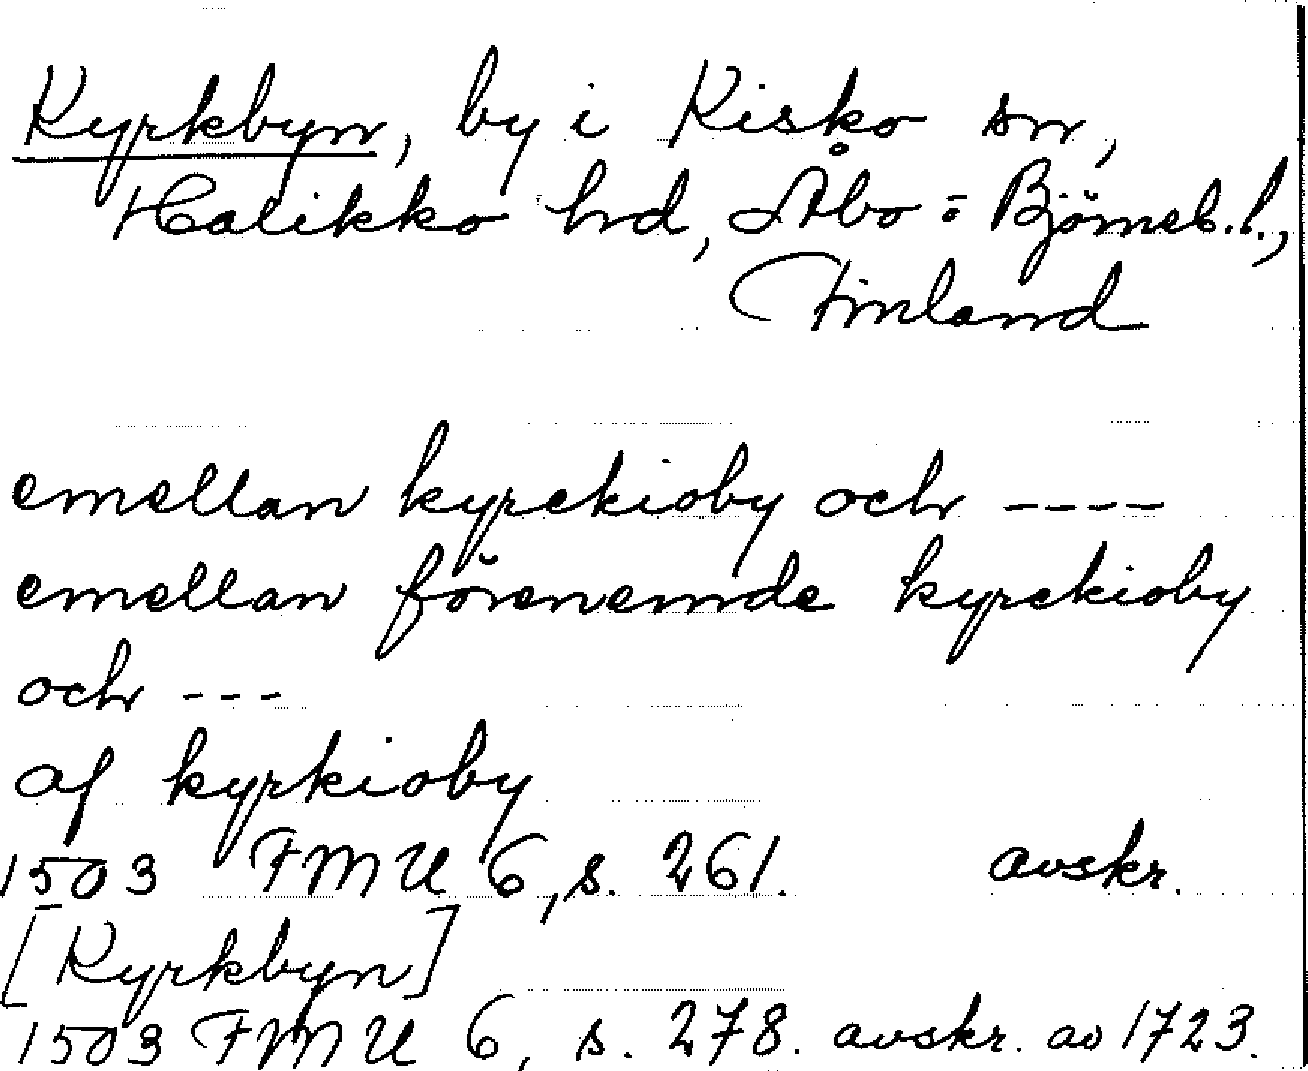 Kyrkbyn, by i Kisko sn,
Halikko hd, Åbo = Björneb. l.,
Finland
emellan kyrckioby och ----
emellan förenemde kyrckioby
och ---
af kyrkioby
1503 FMU 6, s. 261. avskr.
[Kyrkbyn]
1503 FMU 6, s. 278. avskr. av 1723.